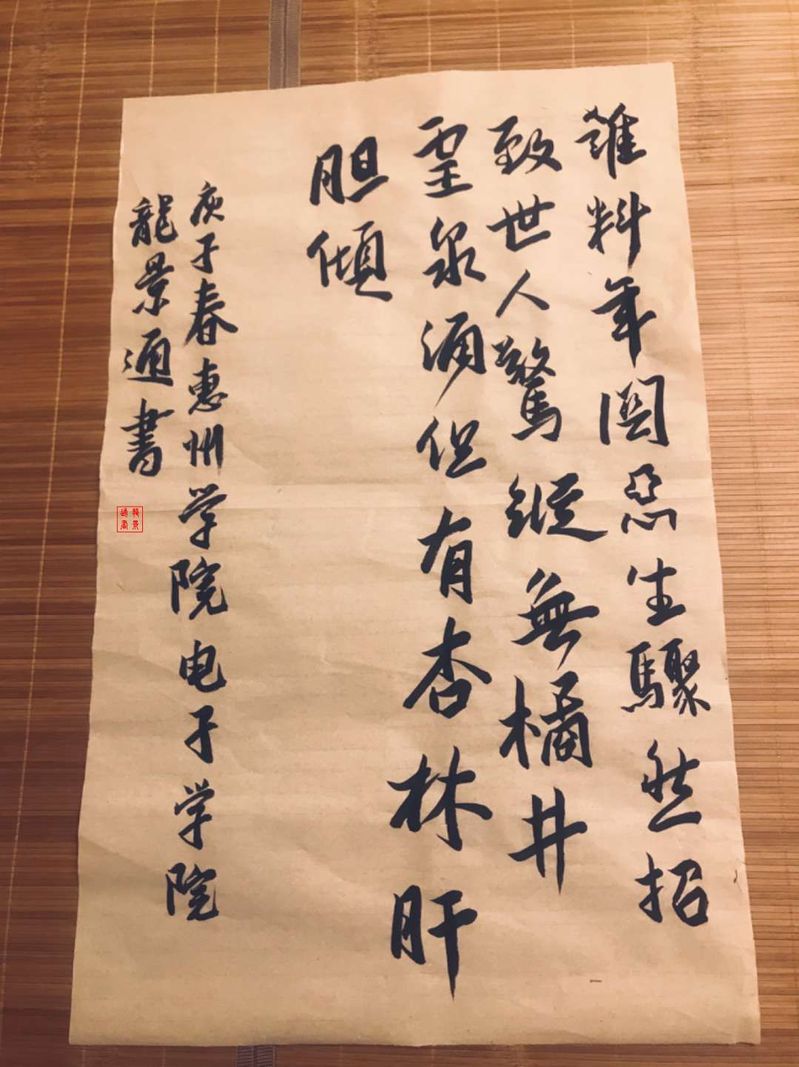 誰料年関恶生驟然招
致世人驚縱無橘井
霊泉涌但有杏林肝
胆傾
庚子春惠州学院电子学院
龍景通書